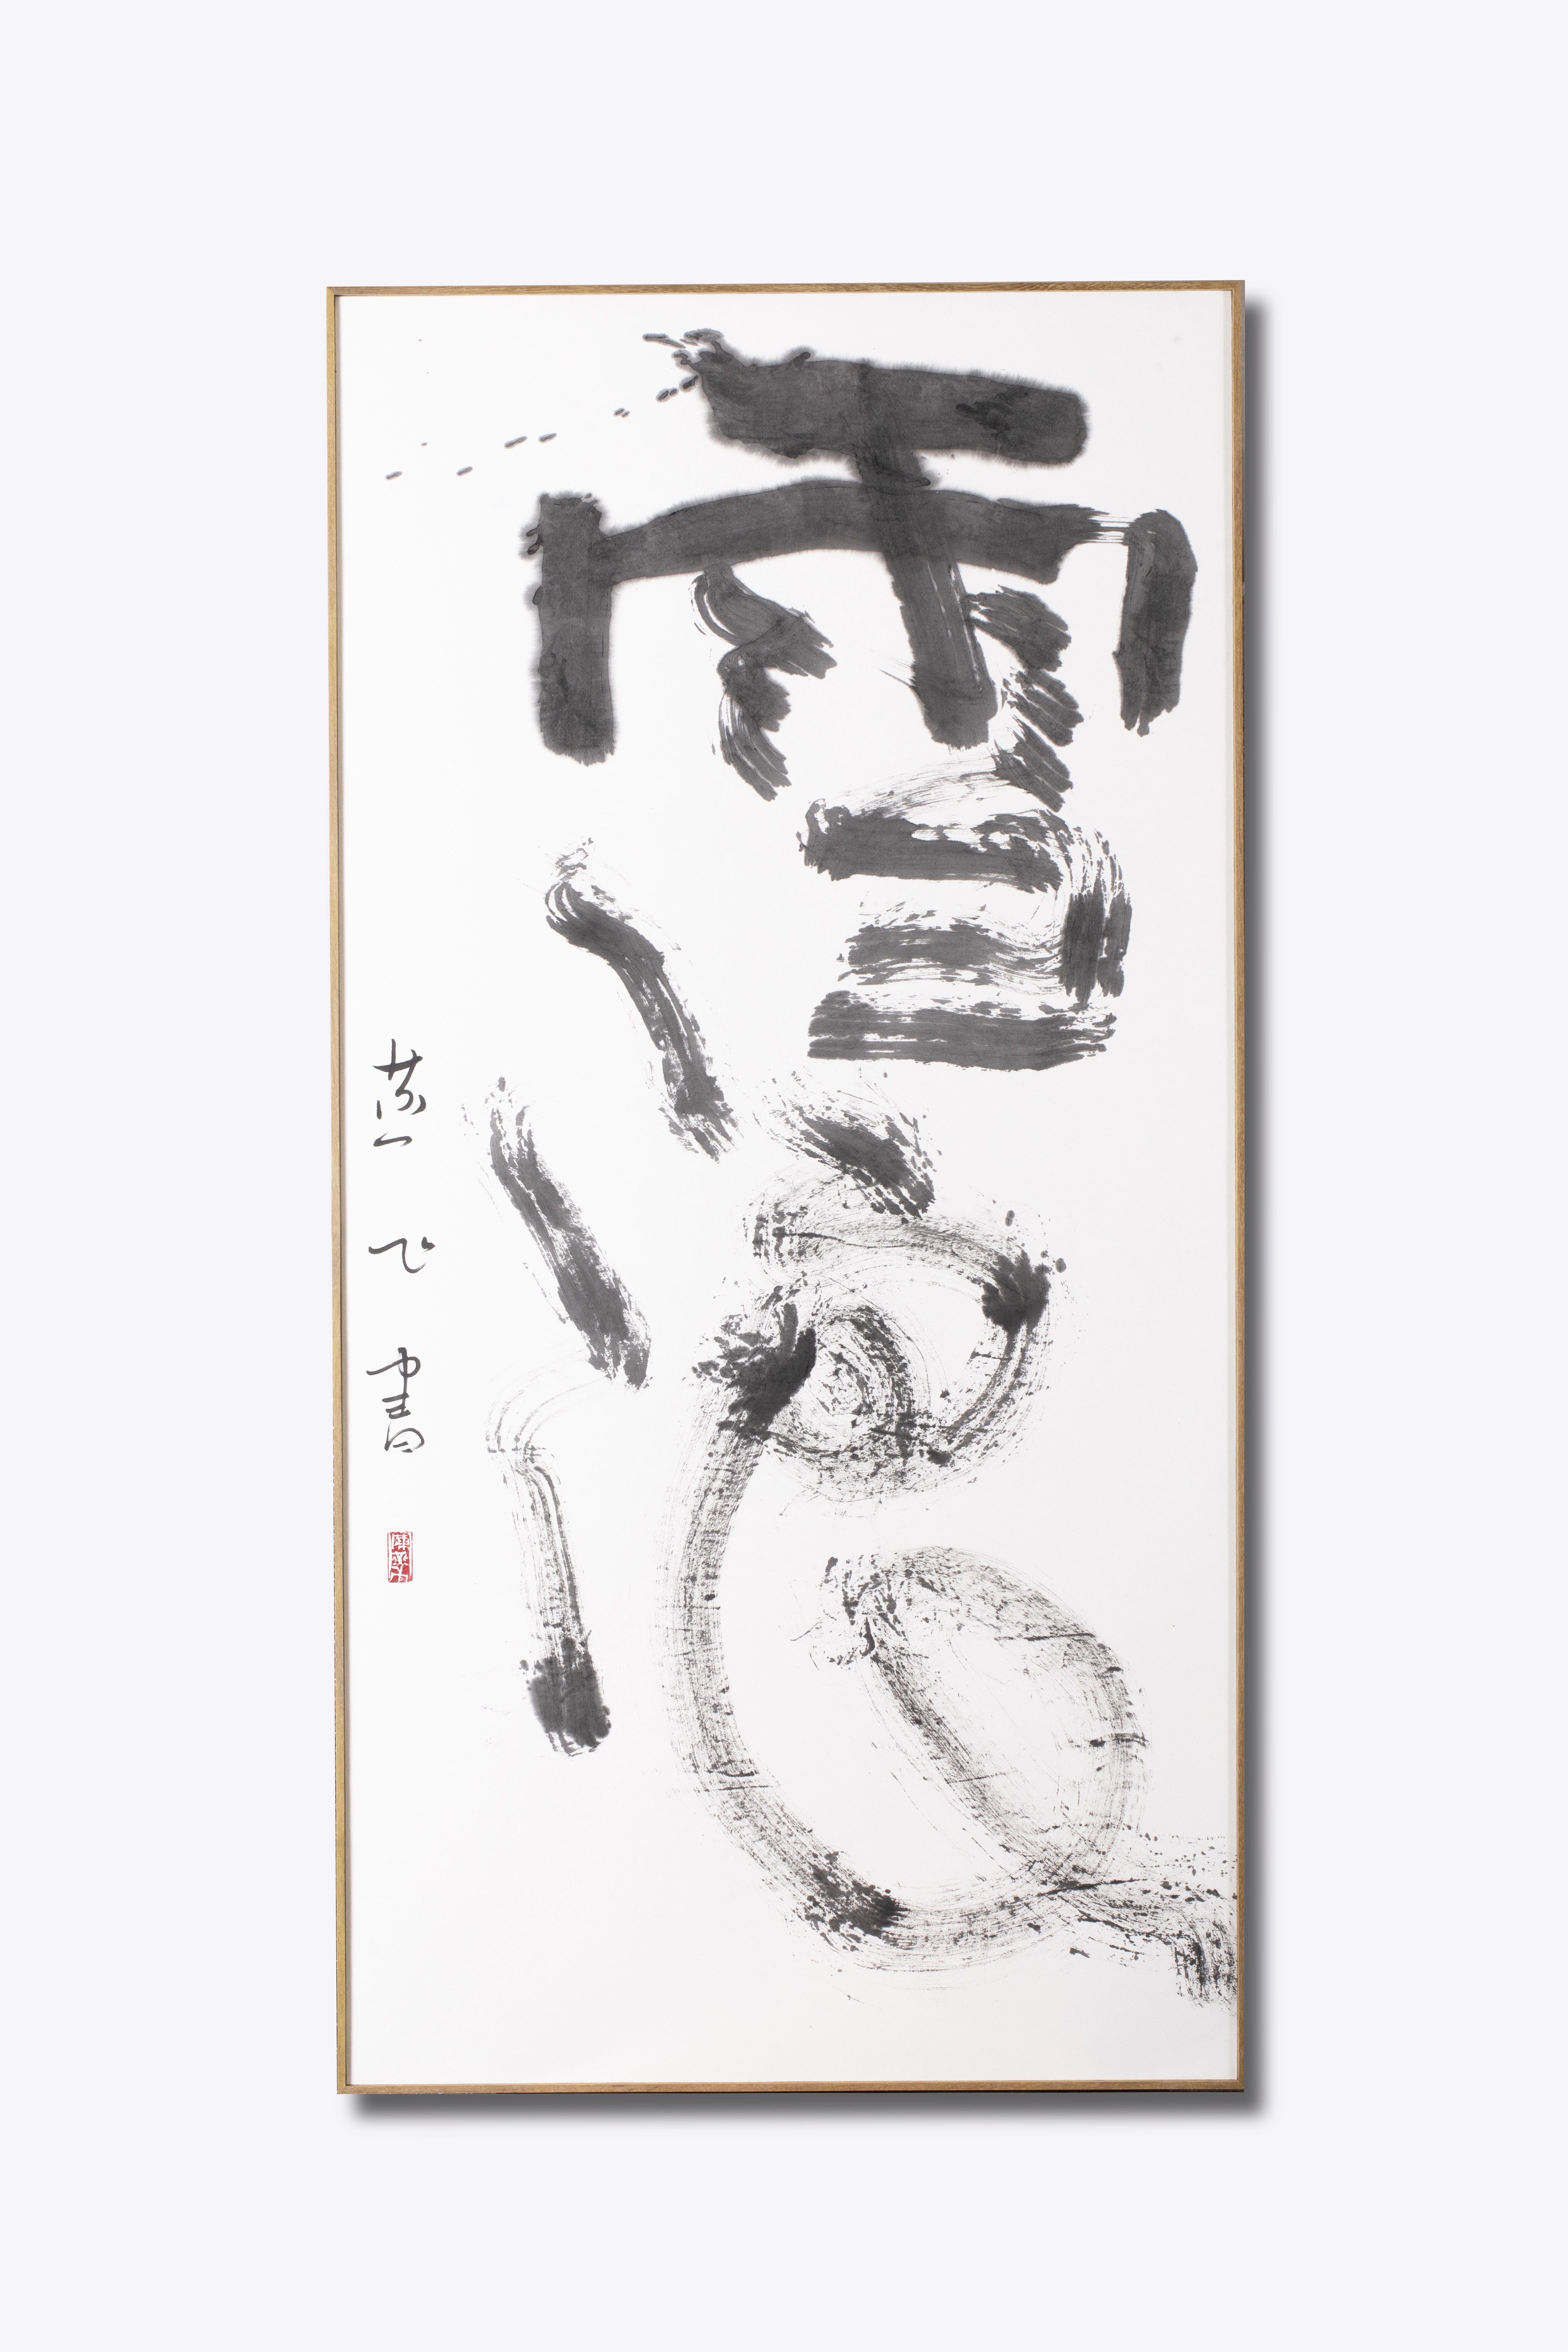 雪浪
燕飞書